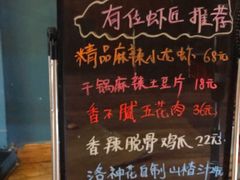 有位虾匠 推荐
精品麻辣小龙虾 68元
干锅麻辣土豆片 18元
香不腻五花肉 36元
香辣脱骨鸡爪 22元
洛神花自制山楂汁